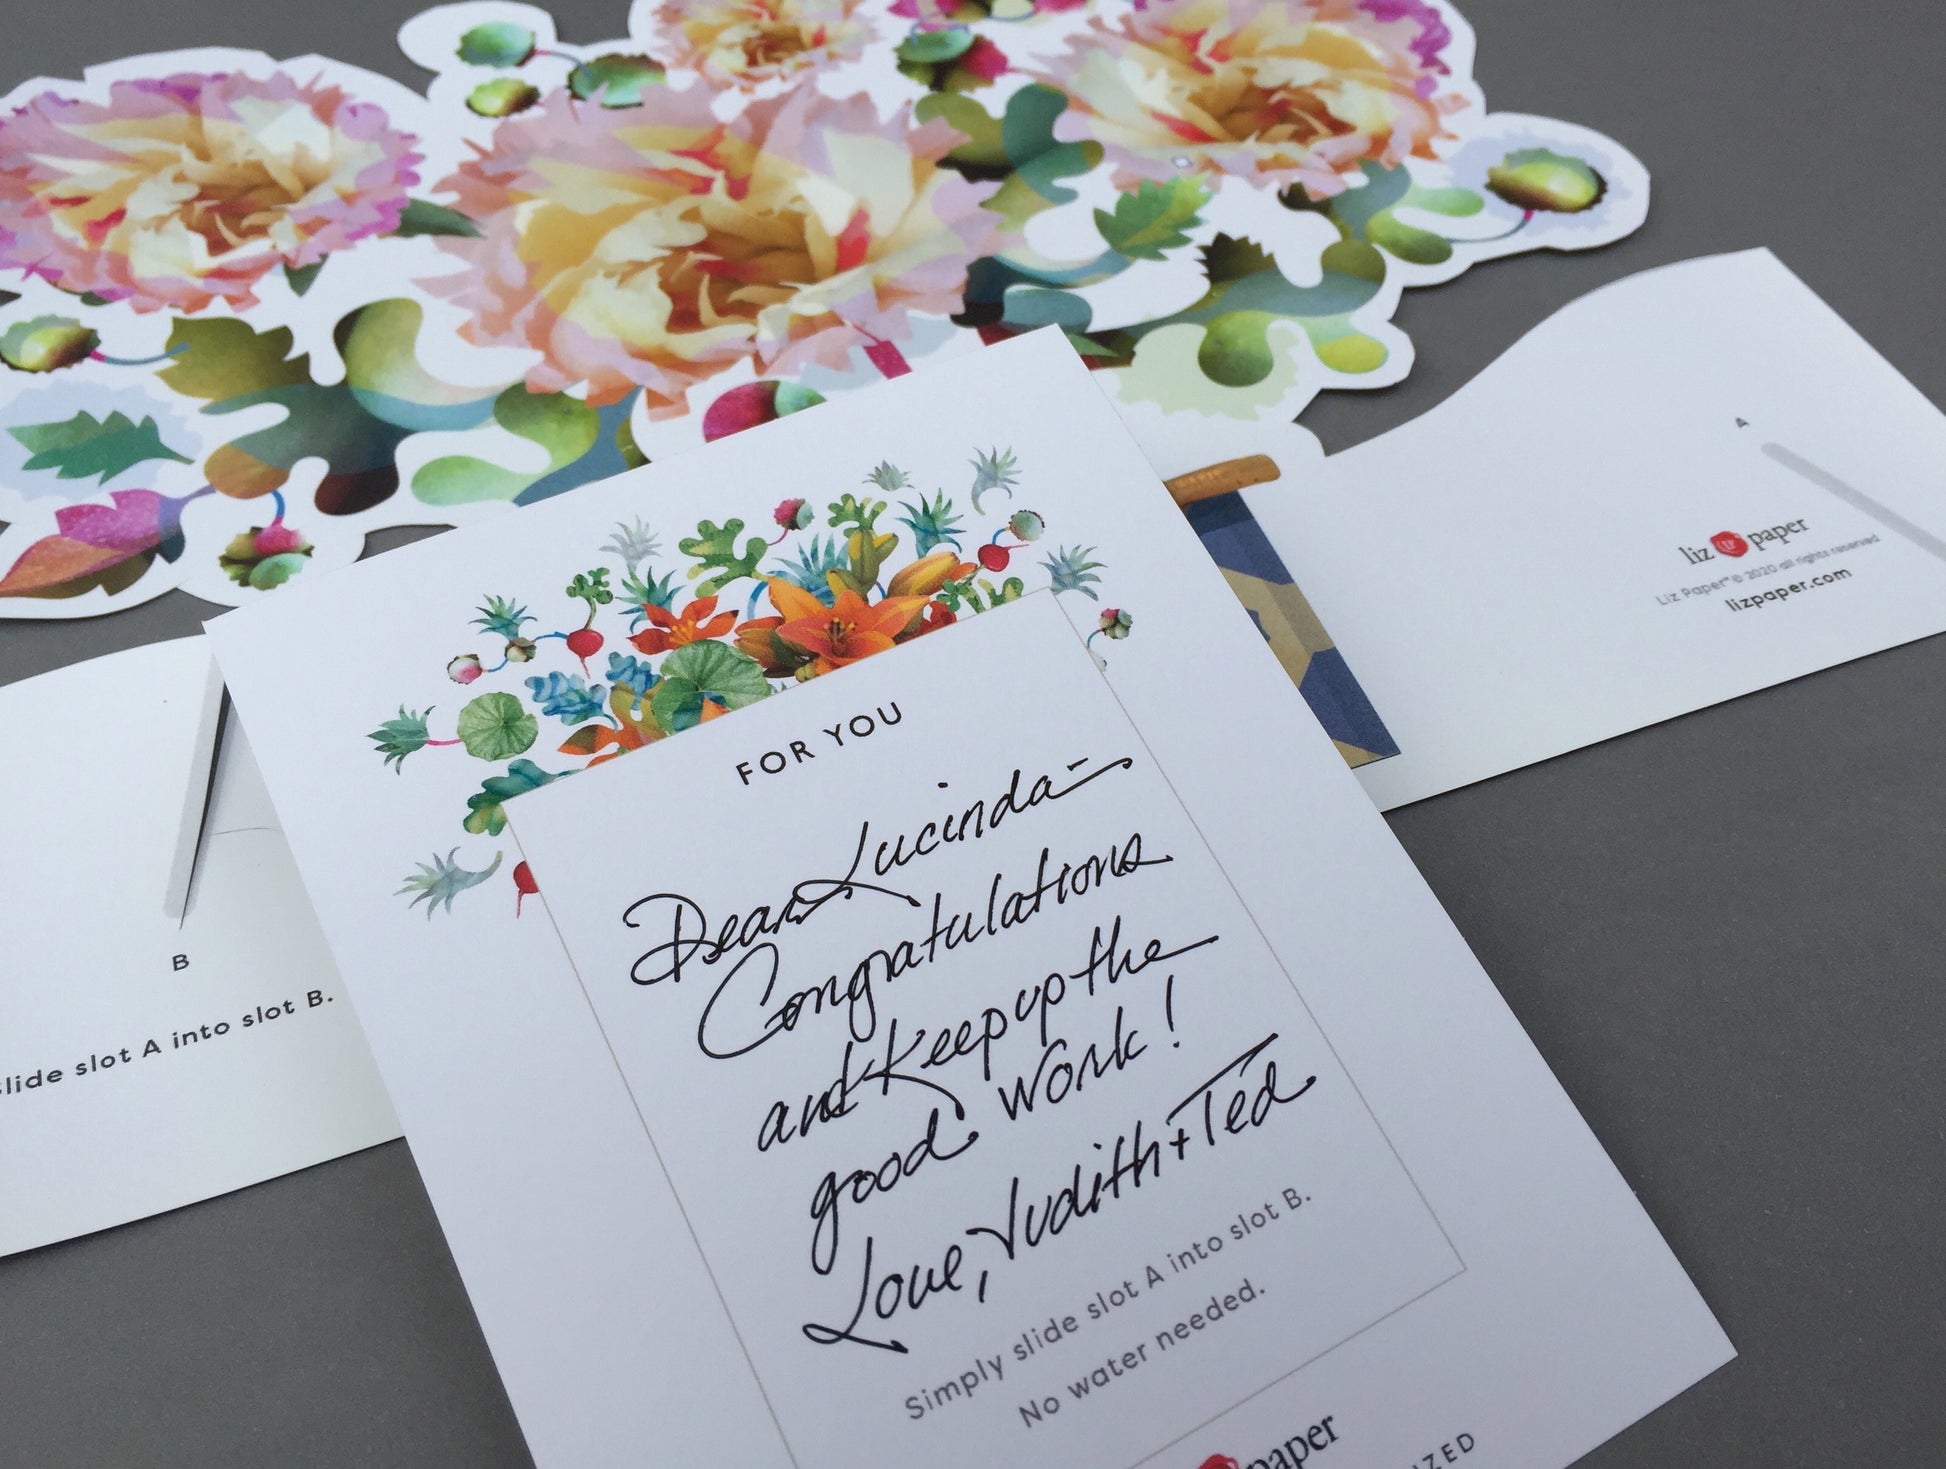 FOR YOU
Dear Lucinda-
Congratulations
and Keep up the
good work!
Love, Judith + Ted
Simply slide slot A into slot B.
No water needed.
paper
B
slide slot A into slot B.
A
liz LP paper
Liz Paper™ © 2020 all rights reserved
lizpaper.com